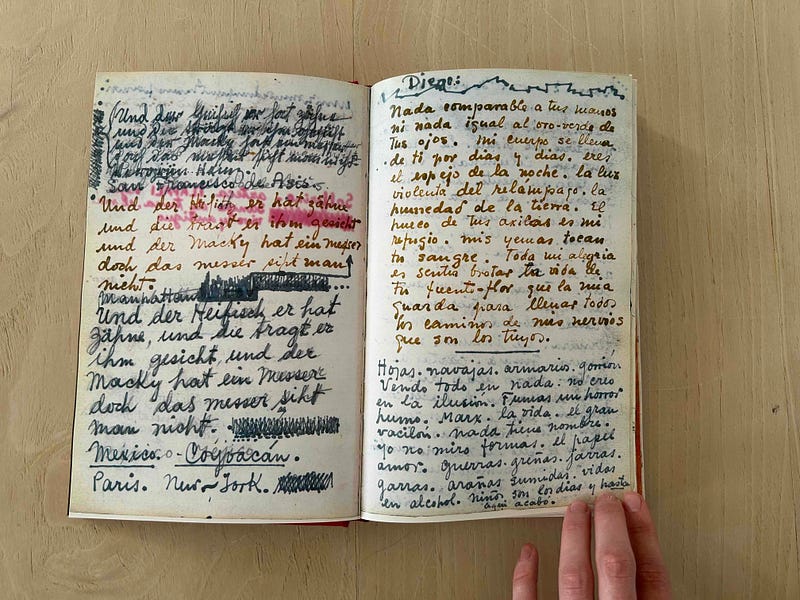 Und der Haifisch er hat zähne
und die tragt er ihm gesicht
und der Macky hat ein messer
doch das messer siht man nicht
San Francisco de Asis.
Und der Heifisch, er hat zähne
und die tragt er ihm gesicht
und der Macky hat ein messer
doch das messer siht man
nicht.
Manhattan
Und der Heifisch er hat
Zähne, und die tragt er
ihm gesicht, und der
Macky hat ein Messer
doch das messer siht
man nicht.
Mexico. - Coyoacán.
Paris. New-York.
Diego:
Nada comparable a tus manos
ni nada igual al oro-verde de
tus ojos. Mi cuerpo se llena
de ti por dias y dias. eres
el espejo de la noche. la luz
violenta del relampago. la
humedad de la tierra. El
hueco de tus axilas es mi
refugio. mis yemas tocan
tu sangre. Toda mi alegria
es sentir brotar la vida de
tu fuente-flor que la mia
guarda para llenar todos
los caminos de mis nervios
que son los tuyos.
Hojas. navajas. armario. gorrión
Vendo todo en nada. no creo
en la ilusión. Fumas un horror
humo. Marx. la vida. el gran
vacilón. nada tiene nombre.
yo no miro formas. el papel
amor. guerras. greñas. jarras.
garras. arañas sumidas. vidas
en alcohol. niños son los dias y hasta
aqui acabó.